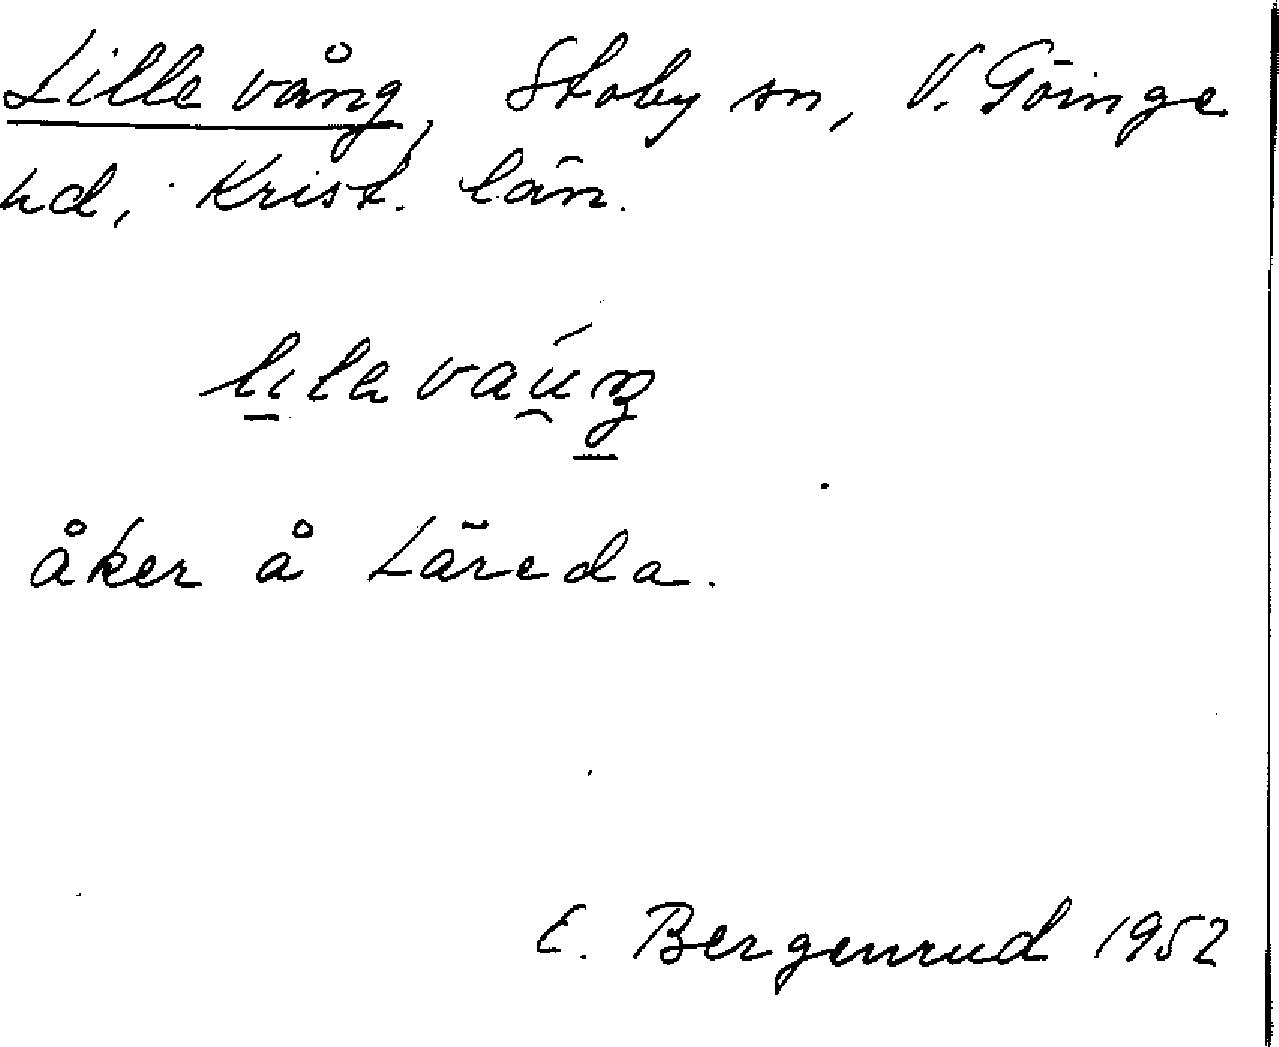 Lille vång, Stoby sn, V. Göinge
hd, Krist. län.
åker å Läreda.
E. Bergenrud 1952